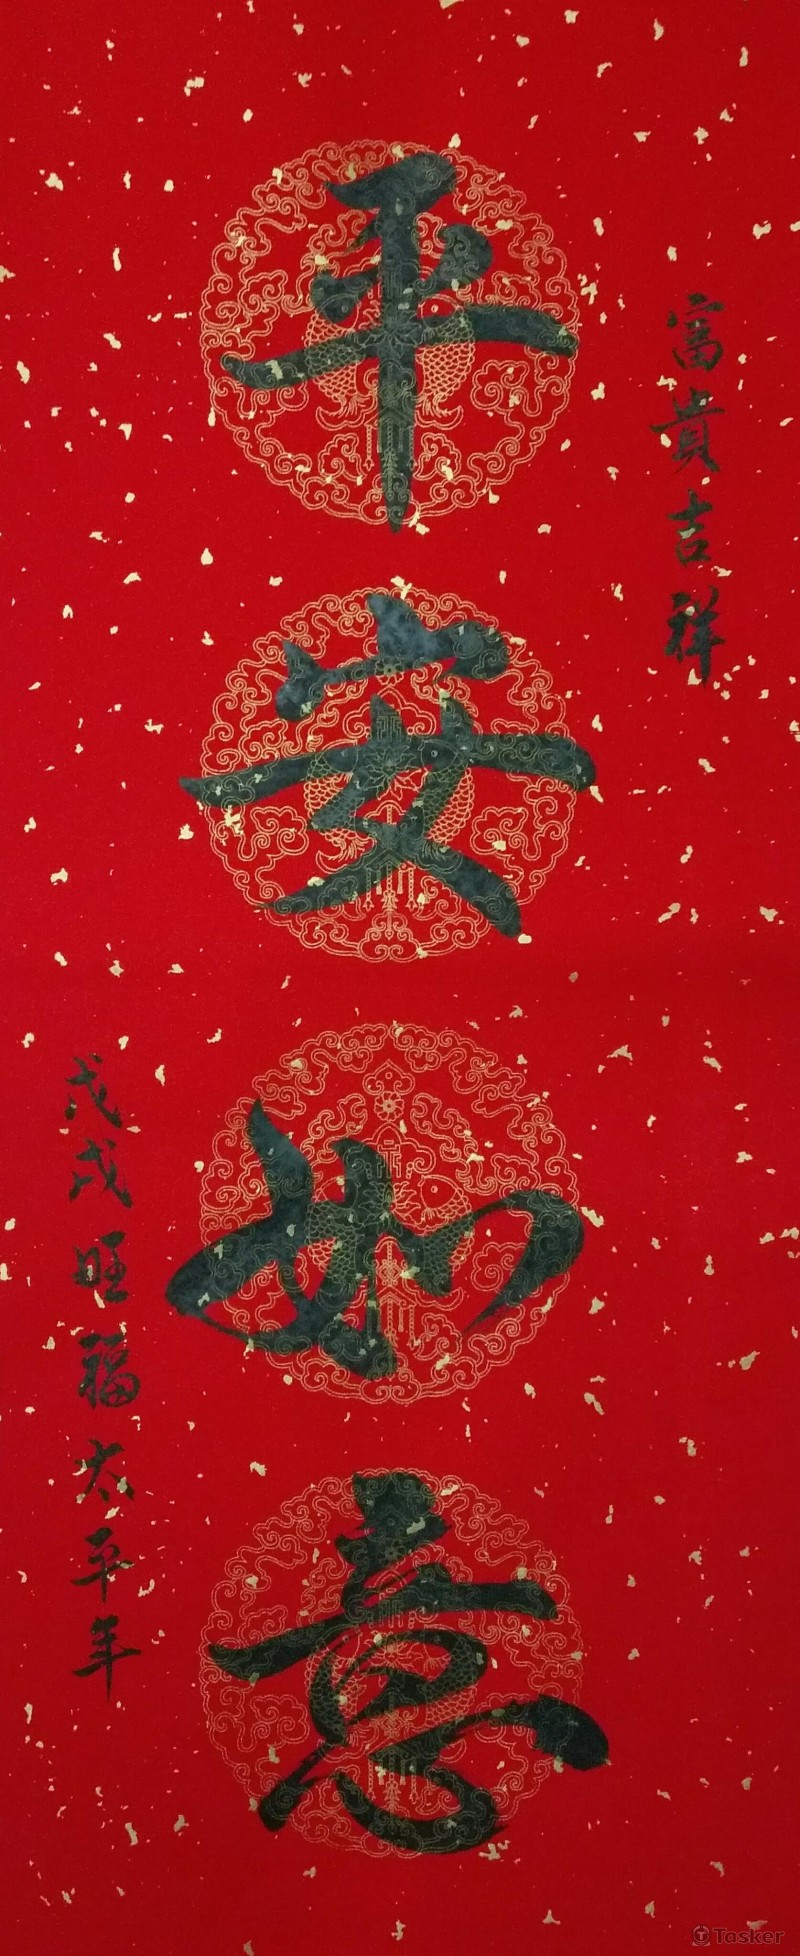 富貴吉祥
平安如意
戊戌旺福太平年
Tasker